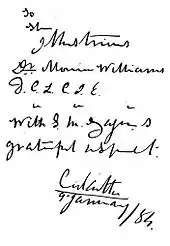 To
the
Illustrious
Dr. Monier Williams
D.C.L. C.I.E.
" " "
With S. M. Tagore's
grateful respect.
Calcutta
9 January / 84.